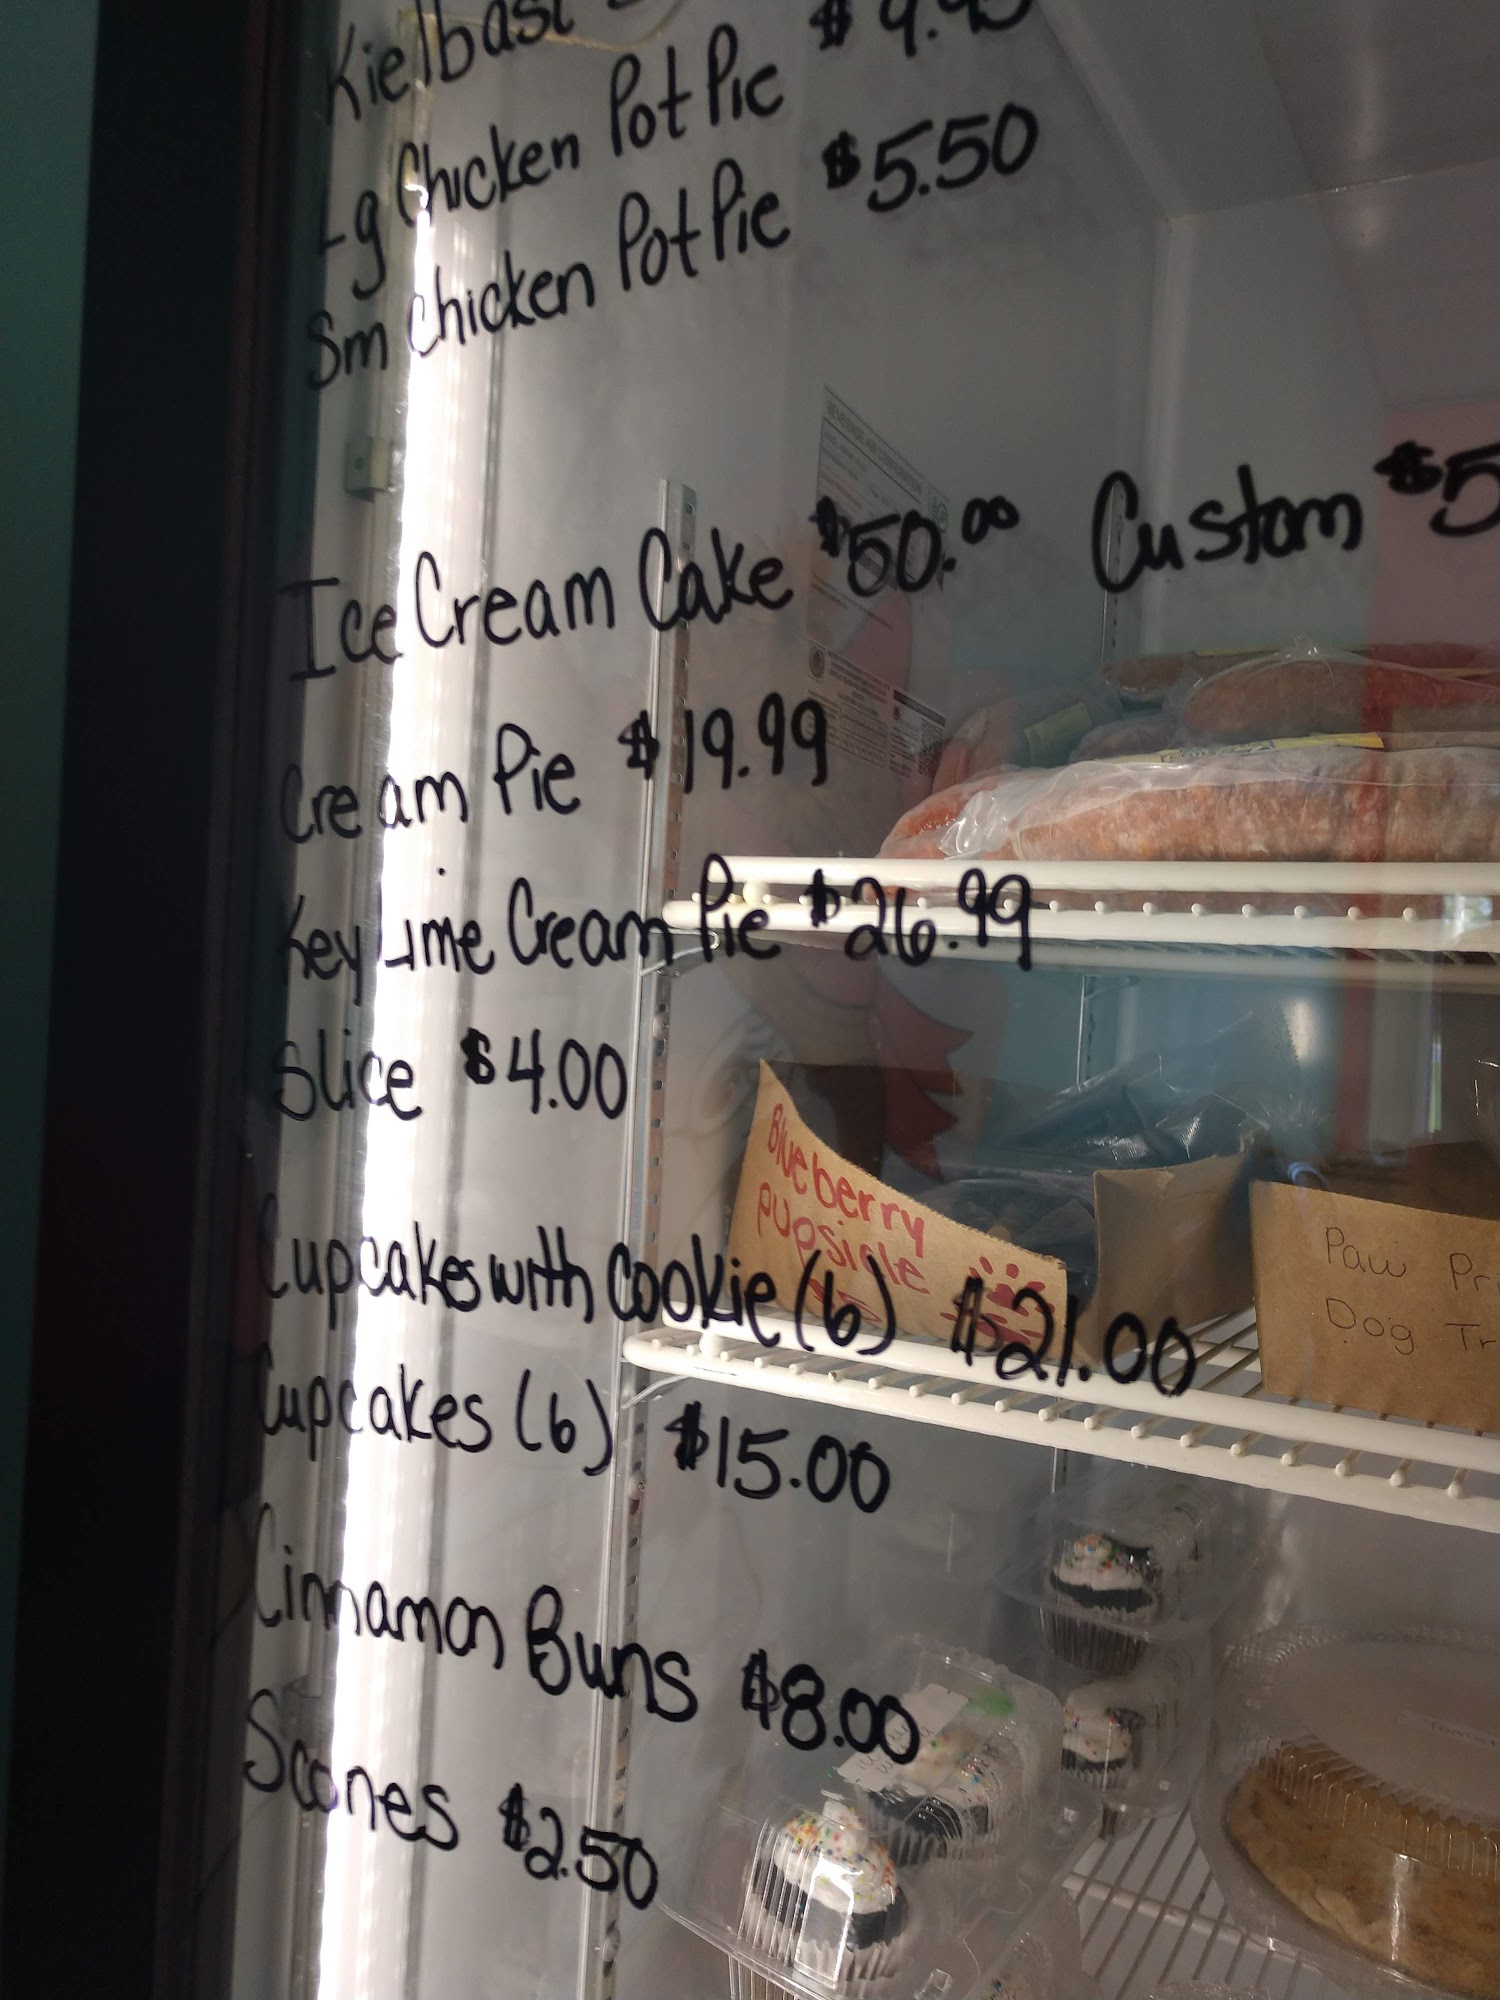 Kielbasi
Lg Chicken Pot Pie $9.95
Sm Chicken Pot Pie $5.50
Ice Cream Cake $50.00 Custom $5
Cream Pie $19.99
Key Lime Cream Pie $26.99
Slice $4.00
Blueberry
pupsicle
Paw Pri
Dog Tr
Cupcakes with Cookie (6) $21.00
Cupcakes (6) $15.00
Cinnamon Buns $8.00
Scones $2.50